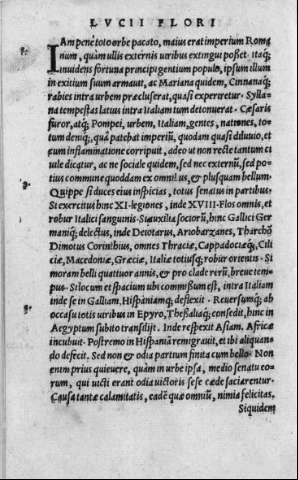 LVCII FLORI
IAm penè toto orbe pacato, maius erat imperium Roma
num, quàm ullis externis uiribus extingui posset. Itaq;
inuidens fortuna principi gentium populo, ipsum illum
in exitium suum armauit, ac Mariana quidem, Cinnanaq;
rabies intra urbem præcluserat, quasi experiretur. Sylla-
na tempestas latius intra Italiam tum detonuerat. Cæsaris
furor, atq; Pompei, urbem, Italiam, gentes, nationes, to-
tum deniq; quà patebat imperiũ, quodam quasi diluuio, et
cum inflammatione corripuit, adeo ut non recte tantum ci
uile dicatur, ac ne sociale quidem, sed nec externũ, sed po-
tius commune quoddam ex omnibus, & plusquam bellum.
Quippe si duces eius inspicias, totus senatus in partibus.
Si exercitus hinc XI. legiones, inde XVIII. Flos omnis, et
robur Italici sanguinis. Si auxilia sociorũ, hinc Gallici Ger
maniq; delectus, inde Deiotarus, Ariobarzanes, Tharcho
Dimotus Corinthius, omnes Thraciæ, Cappadociæq;, Cili
ciæ, Macedoniæ, Græciæ, Italiæ totiusq; robur orientis. Si
moram belli quattuor annis, & pro clade rerũ, breue tem-
pus. Si locum et spacium ubi commissum est, intra Italiam
inde se in Galliam, Hispaniamq; deflexit. Reuersumq; ab
occasu totis uiribus in Epyro, Thessaliaq; consedit, hinc in
Aegyptum subito transilijt. Inde respexit Asiam. Africæ
incubuit. Postremo in Hispaniã remigrauit, et ibi aliquan
do defecit. Sed non & odia partium finita cum bello. Non
enim prius quieuere, quàm in urbe ipsa, medio senatu eo-
rum, qui uicti erant odia uictoris sese cæde saciarentur.
Causa tantæ calamitatis, eadẽ quæ omniũ, nimia felicitas.
Siquidem